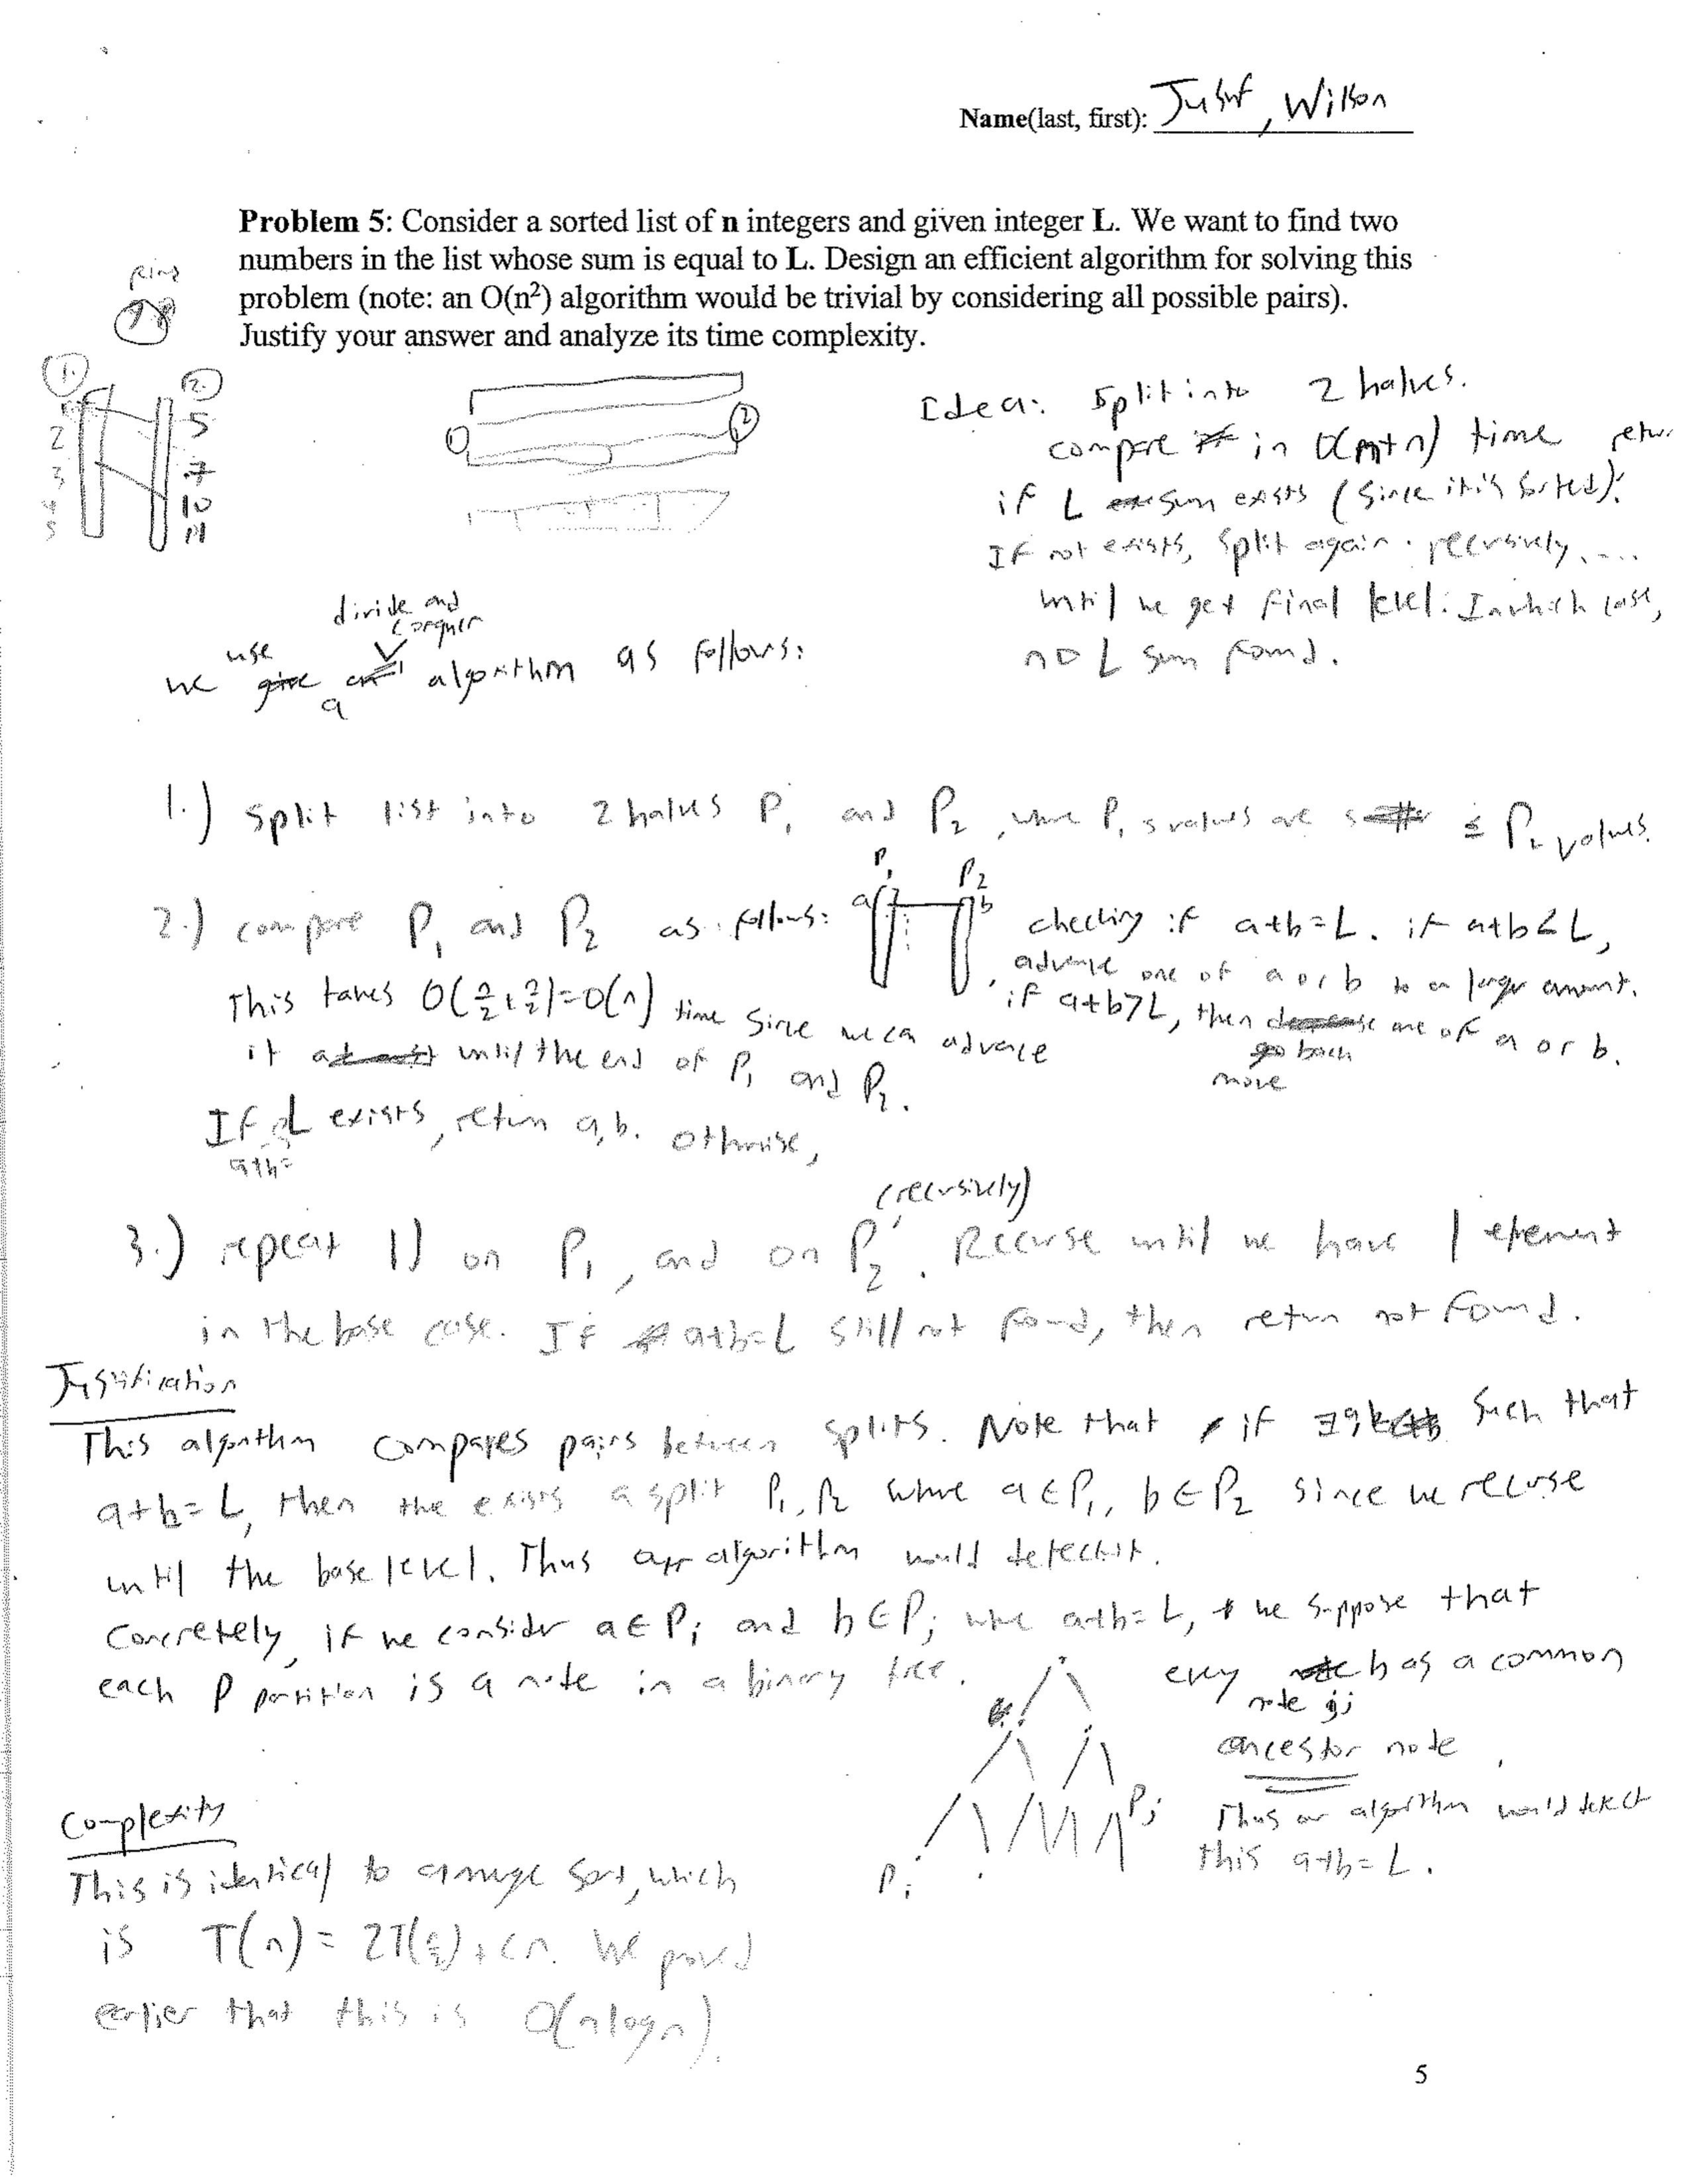 Name(last, first): Jusuf, Wilson
Problem 5: Consider a sorted list of n integers and given integer L. We want to find two
numbers in the list whose sum is equal to L. Design an efficient algorithm for solving this
problem (note: an O(n²) algorithm would be trivial by considering all possible pairs).
Justify your answer and analyze its time complexity.
1.
2
3
4
5
2.
5
7
10
11
1
2
Idea: Split into 2 halves.
compare in O(m+n) time retur
if L sum exists (since it is sorted).
If not exists, split again recursively, ....
until we get final level. In which case,
no L sum found.
we use a divide and conquer algorithm as follows:
1.) split list into 2 halves P1 and P2, where P1's values are ≤ P2 values.
2.) compare P1 and P2 as follows:
P1 P2
a b
checking if a+b=L. if a+b<L,
advance one of a or b to a larger amount.
if a+b>L, then move back one of a or b.
This takes O(n/2+n/2)=O(n) time since we can advance
it until the end of P1 and P2.
If a+b=L exists, return a,b. otherwise,
3.) repeat 1) on P1, and on P2 (recursively). Recurse until we have 1 element
in the base case. If a+b=L still not found, then return not found.
Justification
This algorithm compares pairs between splits. Note that if ∃ such that
a+b=L, then the exists a split P1, P2 where a∈P1, b∈P2 since we recurse
until the base level. Thus our algorithm would detect it.
Concretely, if we consider a∈Pi and b∈Pj where a+b=L, we suppose that
each P partition is a node in a binary tree.
every node has a common
ancestor node,
Thus our algorithm would detect
this a+b=L.
Pi
Pj
Complexity
This is identical to a merge sort, which
is T(n) = 2T(n/2)+cn. We proved
earlier that this is O(nlogn).
5